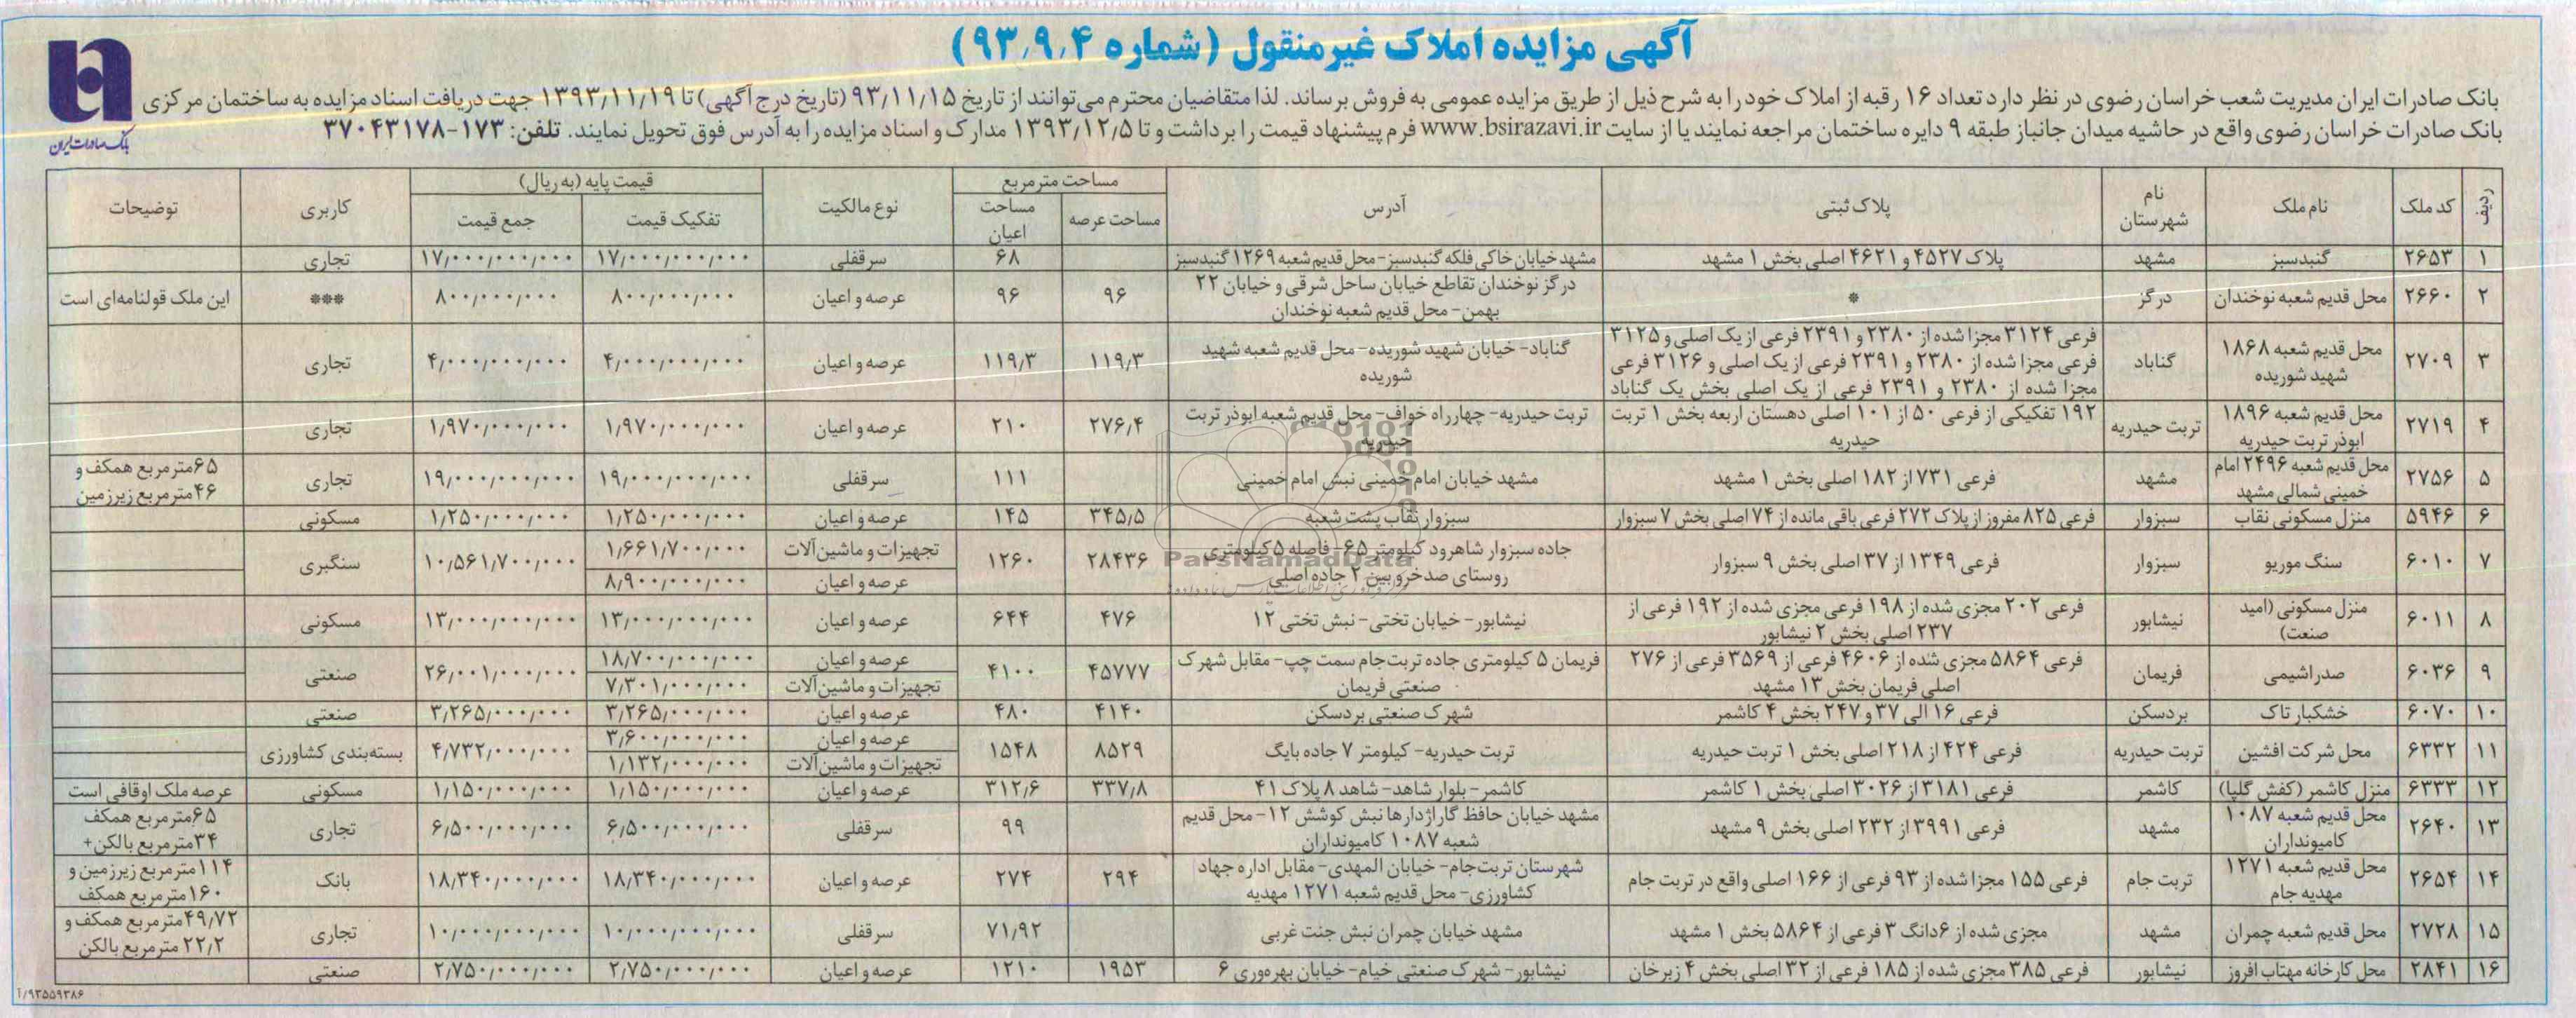 آگهی مزایده املاک غیرمنقول (شماره ۹۳.۹.۴)
بانک صادرات ایران
بانک صادرات ایران مدیریت شعب خراسان رضوی در نظر دارد تعداد ۱۶ رقبه از املاک خود را به شرح ذیل از طریق مزایده عمومی به فروش برساند. لذا متقاضیان محترم می‌توانند از تاریخ ۹۳/۱۱/۱۵ (تاریخ درج آگهی) تا ۱۳۹۳/۱۱/۱۹ جهت دریافت اسناد مزایده به ساختمان مرکزی
بانک صادرات خراسان رضوی واقع در حاشیه میدان جانباز طبقه ۹ دایره ساختمان مراجعه نمایند یا از سایت www.bsirazavi.ir فرم پیشنهاد قیمت را برداشت و تا ۱۳۹۳/۱۲/۵ مدارک و اسناد مزایده را به آدرس فوق تحویل نمایند. تلفن: ۱۷۳-۳۷۰۴۳۱۷۸
ردیف | کد ملک | نام ملک | نام شهرستان | پلاک ثبتی | آدرس | مساحت مترمربع: مساحت عرصه | مساحت اعیان | نوع مالکیت | قیمت پایه (به ریال): تفکیک قیمت | جمع قیمت | کاربری | توضیحات
۱ | ۲۶۵۳ | گنبدسبز | مشهد | پلاک ۴۵۲۷ و ۴۶۲۱ اصلی بخش ۱ مشهد | مشهد خیابان خاکی فلکه گنبدسبز- محل قدیم شعبه ۱۲۶۹ گنبدسبز | | ۶۸ | سرقفلی | ۱۷/۰۰۰/۰۰۰/۰۰۰ | ۱۷/۰۰۰/۰۰۰/۰۰۰ | تجاری |
۲ | ۲۶۶۰ | محل قدیم شعبه نوخندان | درگز | * | درگز نوخندان تقاطع خیابان ساحل شرقی و خیابان ۲۲ بهمن- محل قدیم شعبه نوخندان | ۹۶ | ۹۶ | عرصه و اعیان | ۸۰۰/۰۰۰/۰۰۰ | ۸۰۰/۰۰۰/۰۰۰ | *** | این ملک قولنامه‌ای است
۳ | ۲۷۰۹ | محل قدیم شعبه ۱۸۶۸ شهید شوریده | گناباد | فرعی ۳۱۲۴ مجزا شده از ۲۳۸۰ و ۲۳۹۱ فرعی از یک اصلی و ۳۱۲۵ فرعی مجزا شده از ۲۳۸۰ و ۲۳۹۱ فرعی از یک اصلی و ۳۱۲۶ فرعی مجزا شده از ۲۳۸۰ و ۲۳۹۱ فرعی از یک اصلی بخش یک گناباد | گناباد- خیابان شهید شوریده- محل قدیم شعبه شهید شوریده | ۱۱۹/۳ | ۱۱۹/۳ | عرصه و اعیان | ۴/۰۰۰/۰۰۰/۰۰۰ | ۴/۰۰۰/۰۰۰/۰۰۰ | تجاری |
۴ | ۲۷۱۹ | محل قدیم شعبه ۱۸۹۶ ابوذر تربت حیدریه | تربت حیدریه | ۱۹۲ تفکیکی از فرعی ۵۰ از ۱۰۱ اصلی دهستان اربعه بخش ۱ تربت حیدریه | تربت حیدریه- چهارراه خواف- محل قدیم شعبه ابوذر تربت حیدریه | ۲۷۶/۴ | ۲۱۰ | عرصه و اعیان | ۱/۹۷۰/۰۰۰/۰۰۰ | ۱/۹۷۰/۰۰۰/۰۰۰ | تجاری |
۵ | ۲۷۵۶ | محل قدیم شعبه ۲۴۹۶ امام خمینی شمالی مشهد | مشهد | فرعی ۷۳۱ از ۱۸۲ اصلی بخش ۱ مشهد | مشهد خیابان امام خمینی نبش امام خمینی | | ۱۱۱ | سرقفلی | ۱۹/۰۰۰/۰۰۰/۰۰۰ | ۱۹/۰۰۰/۰۰۰/۰۰۰ | تجاری | ۶۵مترمربع همکف و ۴۶مترمربع زیرزمین
۶ | ۵۹۴۶ | منزل مسکونی نقاب | سبزوار | فرعی ۸۲۵ مفروز از پلاک ۲۷۲ فرعی باقی مانده از ۷۴ اصلی بخش ۷ سبزوار | سبزوار نقاب پشت شعبه | ۳۴۵/۵ | ۱۴۵ | عرصه و اعیان | ۱/۲۵۰/۰۰۰/۰۰۰ | ۱/۲۵۰/۰۰۰/۰۰۰ | مسکونی |
۷ | ۶۰۱۰ | سنگ موریو | سبزوار | فرعی ۱۳۴۹ از ۳۷ اصلی بخش ۹ سبزوار | جاده سبزوار شاهرود کیلومتر ۶۵- فاصله ۵ کیلومتری روستای صدخرو بین ۲ جاده اصلی | ۲۸۴۳۶ | ۱۲۶۰ | تجهیزات و ماشین‌آلات | ۱/۶۶۱/۷۰۰/۰۰۰ | ۱۰/۵۶۱/۷۰۰/۰۰۰ | سنگبری |
عرصه و اعیان | ۸/۹۰۰/۰۰۰/۰۰۰
۸ | ۶۰۱۱ | منزل مسکونی (امید صنعت) | نیشابور | فرعی ۲۰۲ مجزی شده از ۱۹۸ فرعی مجزی شده از ۱۹۲ فرعی از ۲۳۷ اصلی بخش ۲ نیشابور | نیشابور- خیابان تختی- نبش تختی ۱۲ | ۴۷۶ | ۶۴۴ | عرصه و اعیان | ۱۳/۰۰۰/۰۰۰/۰۰۰ | ۱۳/۰۰۰/۰۰۰/۰۰۰ | مسکونی |
۹ | ۶۰۳۶ | صدراشیمی | فریمان | فرعی ۵۸۶۴ مجزی شده از ۴۶۰۶ فرعی از ۳۵۶۹ فرعی از ۲۷۶ اصلی فریمان بخش ۱۳ مشهد | فریمان ۵ کیلومتری جاده تربت‌جام سمت چپ- مقابل شهرک صنعتی فریمان | ۴۵۷۷۷ | ۴۱۰۰ | عرصه و اعیان | ۱۸/۷۰۰/۰۰۰/۰۰۰ | ۲۶/۰۰۱/۰۰۰/۰۰۰ | صنعتی |
تجهیزات و ماشین‌آلات | ۷/۳۰۱/۰۰۰/۰۰۰
۱۰ | ۶۰۷۰ | خشکبار تاک | بردسکن | فرعی ۱۶ الی ۳۷ و ۲۴۷ بخش ۴ کاشمر | شهرک صنعتی بردسکن | ۴۱۴۰ | ۴۸۰ | عرصه و اعیان | ۳/۲۶۵/۰۰۰/۰۰۰ | ۳/۲۶۵/۰۰۰/۰۰۰ | صنعتی |
۱۱ | ۶۳۳۲ | محل شرکت افشین | تربت حیدریه | فرعی ۴۲۴ از ۲۱۸ اصلی بخش ۱ تربت حیدریه | تربت حیدریه- کیلومتر ۷ جاده بایگ | ۸۵۲۹ | ۱۵۴۸ | عرصه و اعیان | ۳/۶۰۰/۰۰۰/۰۰۰ | ۴/۷۳۲/۰۰۰/۰۰۰ | بسته‌بندی کشاورزی |
تجهیزات و ماشین‌آلات | ۱/۱۳۲/۰۰۰/۰۰۰
۱۲ | ۶۳۳۳ | منزل کاشمر (کفش گلپا) | کاشمر | فرعی ۳۱۸۱ از ۳۰۲۶ اصلی بخش ۱ کاشمر | کاشمر- بلوار شاهد- شاهد ۸ پلاک ۴۱ | ۳۳۷/۸ | ۳۱۲/۶ | عرصه و اعیان | ۱/۱۵۰/۰۰۰/۰۰۰ | ۱/۱۵۰/۰۰۰/۰۰۰ | مسکونی | عرصه ملک اوقافی است
۱۳ | ۲۶۴۰ | محل قدیم شعبه ۱۰۸۷ کامیونداران | مشهد | فرعی ۳۹۹۱ از ۲۳۲ اصلی بخش ۹ مشهد | مشهد خیابان حافظ گاراژدارها نبش کوشش ۱۲- محل قدیم شعبه ۱۰۸۷ کامیونداران | | ۹۹ | سرقفلی | ۶/۵۰۰/۰۰۰/۰۰۰ | ۶/۵۰۰/۰۰۰/۰۰۰ | تجاری | ۶۵مترمربع همکف ۳۴مترمربع بالکن+
۱۴ | ۲۶۵۴ | محل قدیم شعبه ۱۲۷۱ مهدیه جام | تربت جام | فرعی ۱۵۵ مجزا شده از ۹۳ فرعی از ۱۶۶ اصلی واقع در تربت جام | شهرستان تربت‌جام- خیابان المهدی- مقابل اداره جهاد کشاورزی- محل قدیم شعبه ۱۲۷۱ مهدیه | ۲۹۴ | ۲۷۴ | عرصه و اعیان | ۱۸/۳۴۰/۰۰۰/۰۰۰ | ۱۸/۳۴۰/۰۰۰/۰۰۰ | بانک | ۱۱۴مترمربع زیرزمین و ۱۶۰مترمربع همکف
۱۵ | ۲۷۲۸ | محل قدیم شعبه چمران | مشهد | مجزی شده از ۶دانگ ۳ فرعی از ۵۸۶۴ بخش ۱ مشهد | مشهد خیابان چمران نبش جنت غربی | | ۷۱/۹۲ | سرقفلی | ۱۰/۰۰۰/۰۰۰/۰۰۰ | ۱۰/۰۰۰/۰۰۰/۰۰۰ | تجاری | ۴۹/۷۲مترمربع همکف و ۲۲/۲ مترمربع بالکن
۱۶ | ۲۸۴۱ | محل کارخانه مهتاب افروز | نیشابور | فرعی ۳۸۵ مجزی شده از ۱۸۵ فرعی از ۳۲ اصلی بخش ۴ زبرخان | نیشابور- شهرک صنعتی خیام- خیابان بهره‌وری ۶ | ۱۹۵۳ | ۱۲۱۰ | عرصه و اعیان | ۲/۷۵۰/۰۰۰/۰۰۰ | ۲/۷۵۰/۰۰۰/۰۰۰ | صنعتی |
ParsNamadData
۹۳۵۵۹۳۸۶/آ